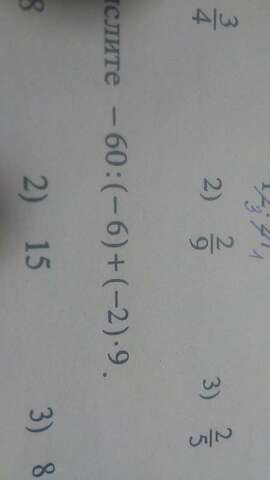 3/4 2) 2/9 3) 2/5
ислите −60:(−6)+(−2)·9.
8 2) 15 3) 8